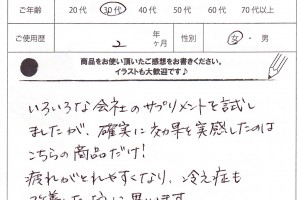 ご年齢 20代 30代 40代 50代 60代 70代以上
ご使用歴 2 年 ヶ月 性別 女・男
商品をお使い頂いたご感想をお書きください。
イラストも大歓迎です♪
いろいろな会社のサプリメントを試し
ましたが、確実に効果を実感したのは
こちらの商品だけ!
疲れがとれやすくなり、冷え症も
改善したように思います